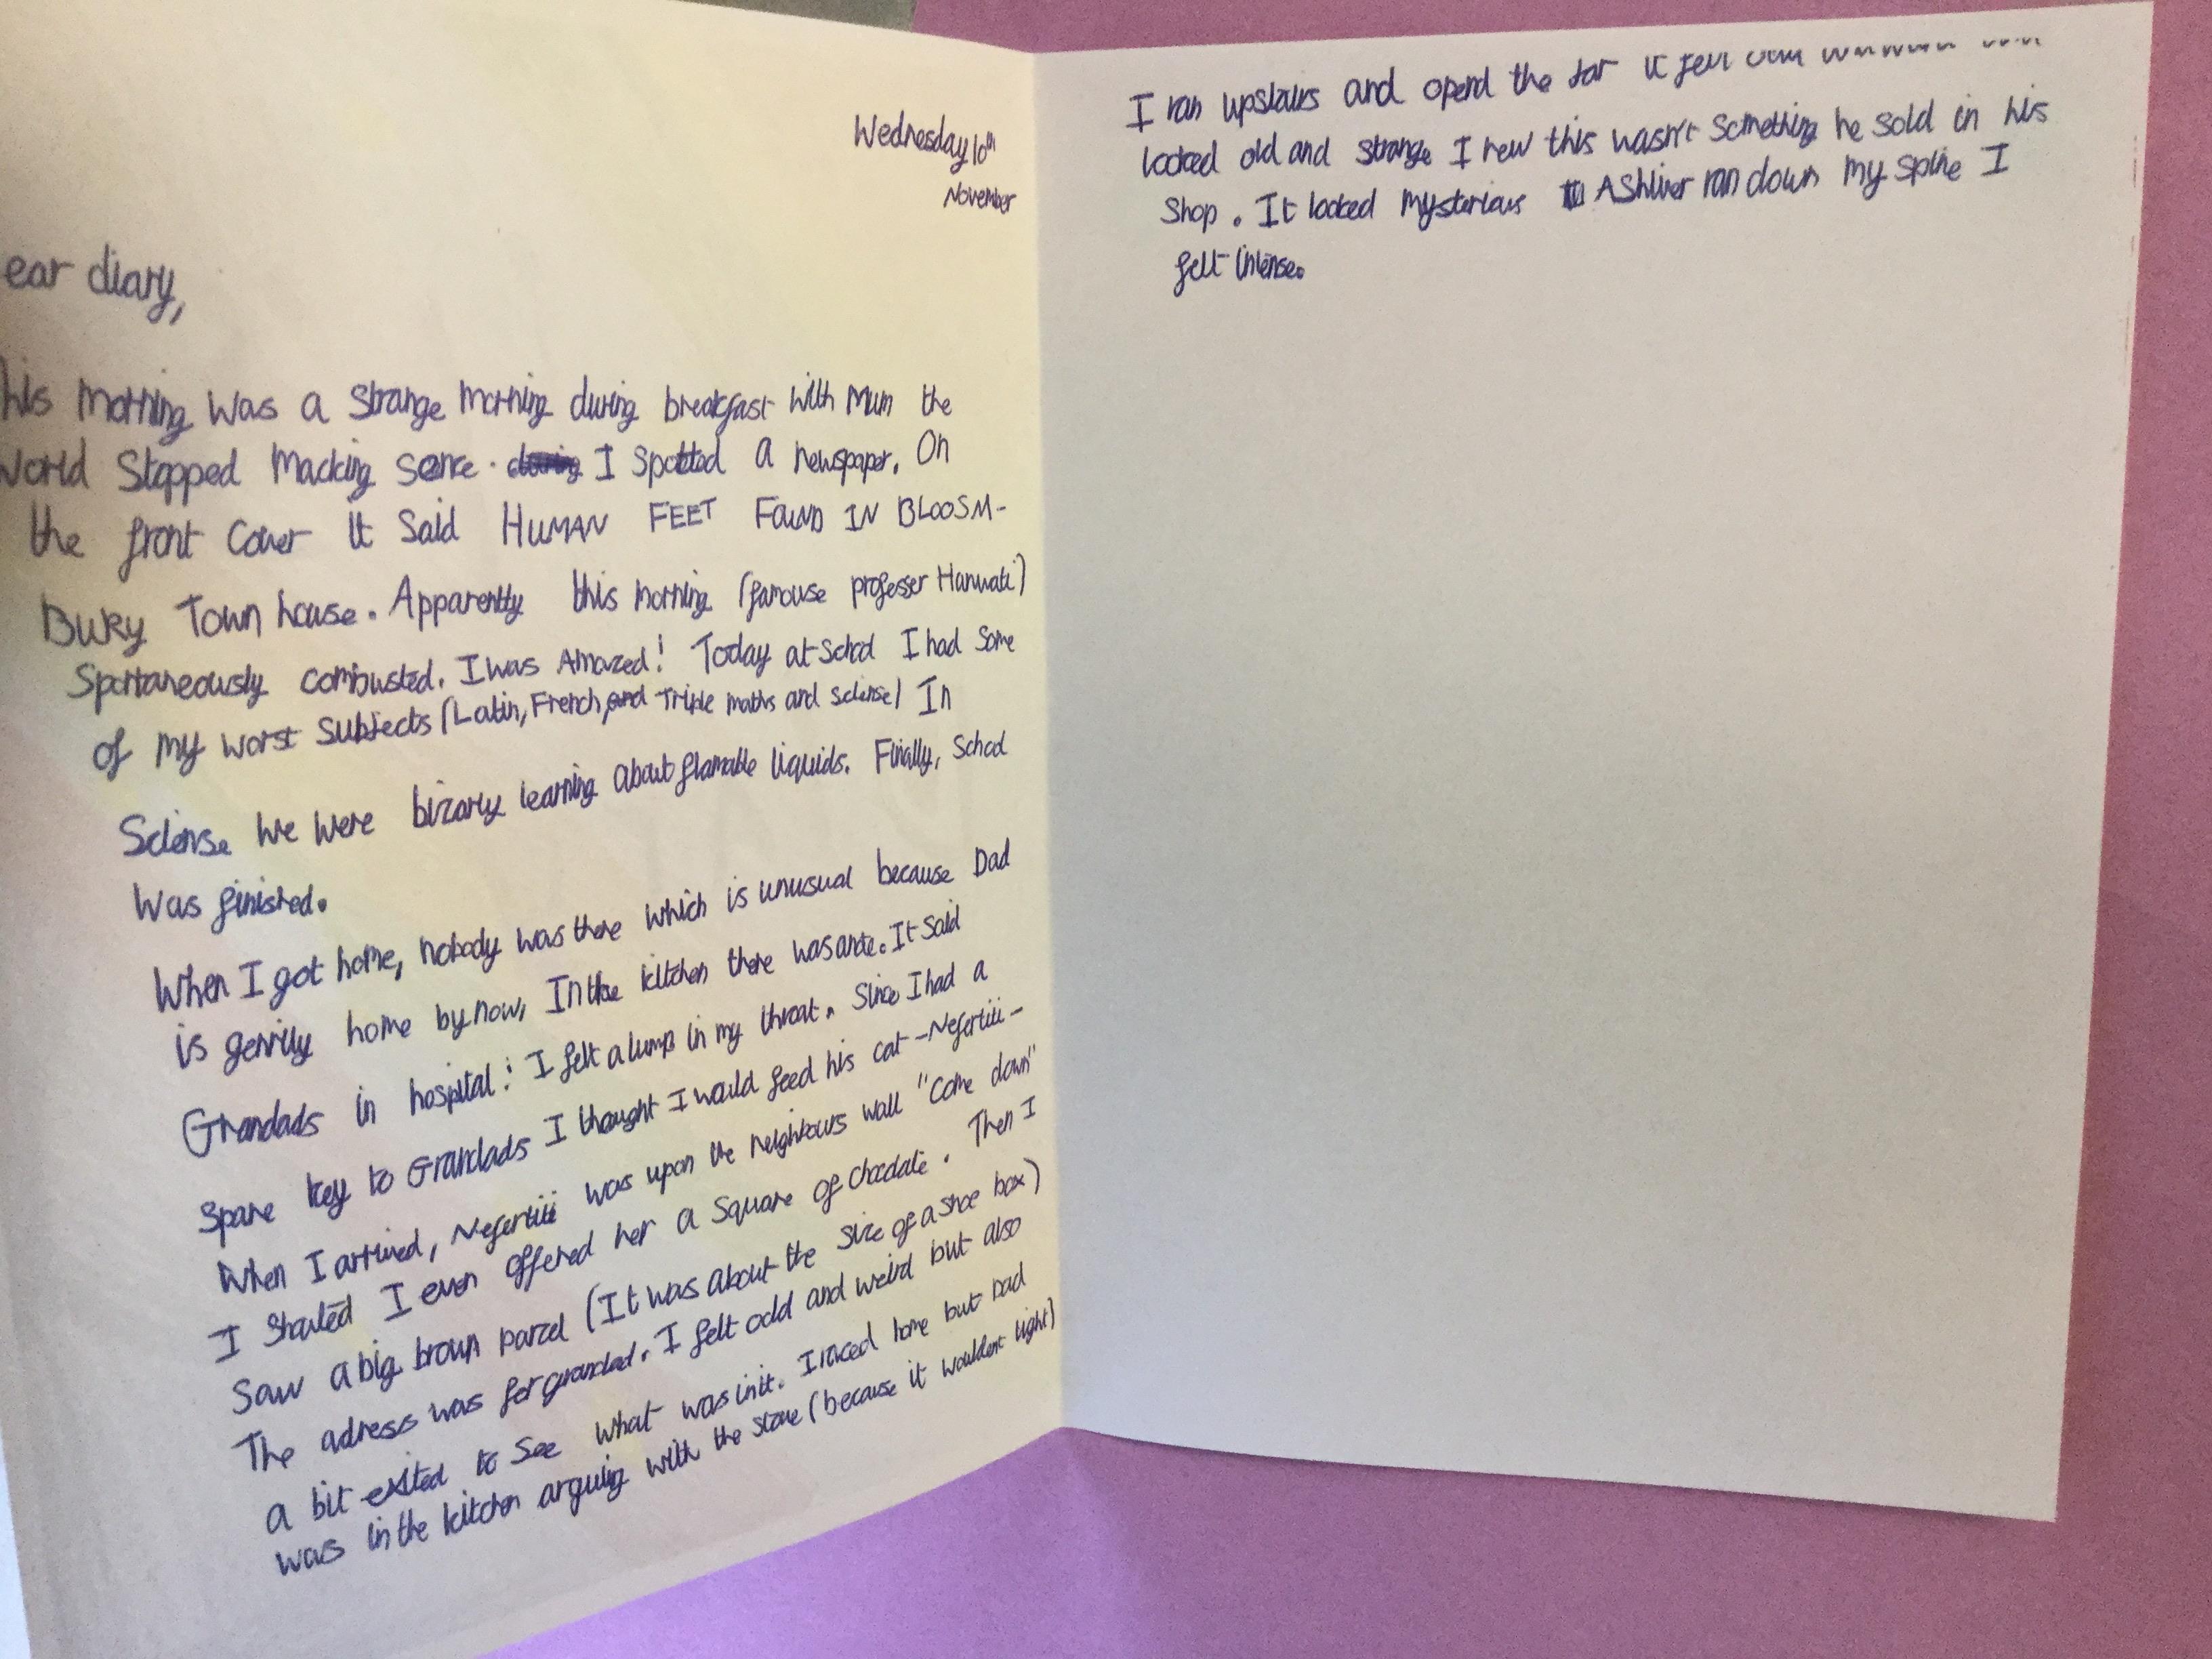 Wednesday 10th
November
ear diary,
his morning was a strange morning during breakfast with Mum the
World Stopped Macking sence. I spotted a newspaper. On
the front cover it said HUMAN FEET FOUND IN BLOOSM-
BURY Town house. Apparently this morning (famouse professer Hanwati)
Spontaneously combusted. I was Amazed! Today at School I had some
of my worst subjects (Latin, French, Triple maths and sciense) In
Sciense we were bizarly learning about flamable liquids. Finally, School
was finished.
When I got home, nobody was there which is unusual because Dad
is genrily home by now, In the kitchen there was a note. It said
Grandads in hospital! I felt a lump in my throat. Since I had a
spare key to Grandads I thought I would feed his cat -Nefertiti-
When I arrived, Nefertiti was upon the neighbours wall "Come down"
I shouted I even offered her a square of chocolate. Then I
saw a big brown parcel (It was about the size of a shoe box)
The adress was for grandad. I felt odd and weird but also
a bit exited to see what was in it. I raced home but Dad
was in the kitchen arguing with the stove (because it wouldent light)
I ran upstairs and opend the Jar it felt
looked old and strange I new this wasn't something he sold in his
Shop. It looked mysterious A Shiver ran down my spine I
felt intense.